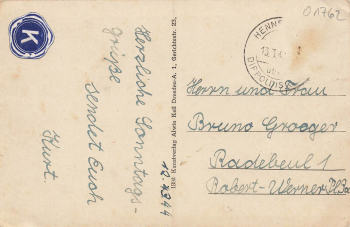 01762
K
Herzliche Sonntags-
grüße
sendet Euch
Kurt.
12.
44
1134 Kunstverlag Alwin Keil Dresden-A. 1, Gerichtsstr. 23.
HENN
13.1.4
DIPPOLDIS
Herrn und Frau
Bruno Groeger
Radebeul 1
Robert-Werner Pl.